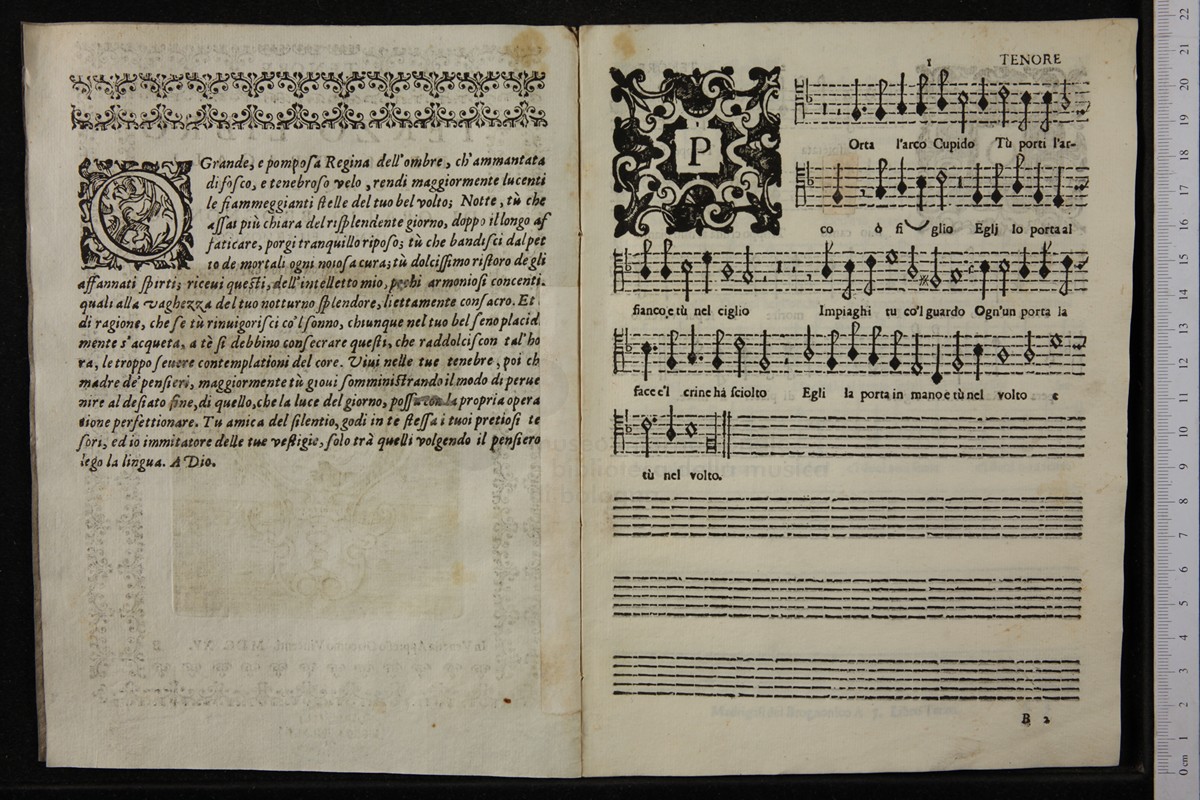 O Grande, e pomposa Regina dell'ombre, ch'ammantata
di fosco, e tenebroso velo, rendi maggiormente lucenti
le fiammeggianti stelle del tuo bel volto; Notte, tù che
assai più chiara del risplendente giorno, doppo il longo af
faticare, porgi tranquillo riposo; tù che bandisci dal pet
to de mortali ogni noiosa cura; tù dolcissimo ristoro de gli
affannati spirti; riceui questi, dell'intelletto mio, pochi armoniosi concenti.
quali alla vaghezza del tuo notturno splendore, liettamente consacro. Et
di ragione, che se tù rinuigorisci co'l sonno, chiunque nel tuo bel seno placid
mente s'acqueta, a tè si debbino consecrare questi, che raddolciscon tal'ho
ra, le troppo seuere contemplationi del core. Viui nelle tue tenebre, poi ch
madre de' pensieri, maggiormente tù gioui somministrando il modo di perue
nire al desiato fine, di quello, che la luce del giorno, possa con la propria opera
tione perfettionare. Tu amica del silentio, godi in te stessa i tuoi pretiosi te
sori, ed io immitatore delle tue vestigie, solo trà quelli volgendo il pensiero
lego la lingua. A Dio.
1 TENORE
P Orta l'arco Cupido Tù porti l'ar-
co ò fi glio Egli lo porta al
fianco, e tù nel ciglio Impiaghi tu co'l guardo Ogn'un porta la
face e'l crine hà sciolto Egli la porta in mano e tù nel volto e
tù nel volto.
B 2
museo
biblioteca della musica
di bologna
22
21
20
19
18
17
16
15
14
13
12
11
10
9
8
7
6
5
4
3
2
1
0 cm